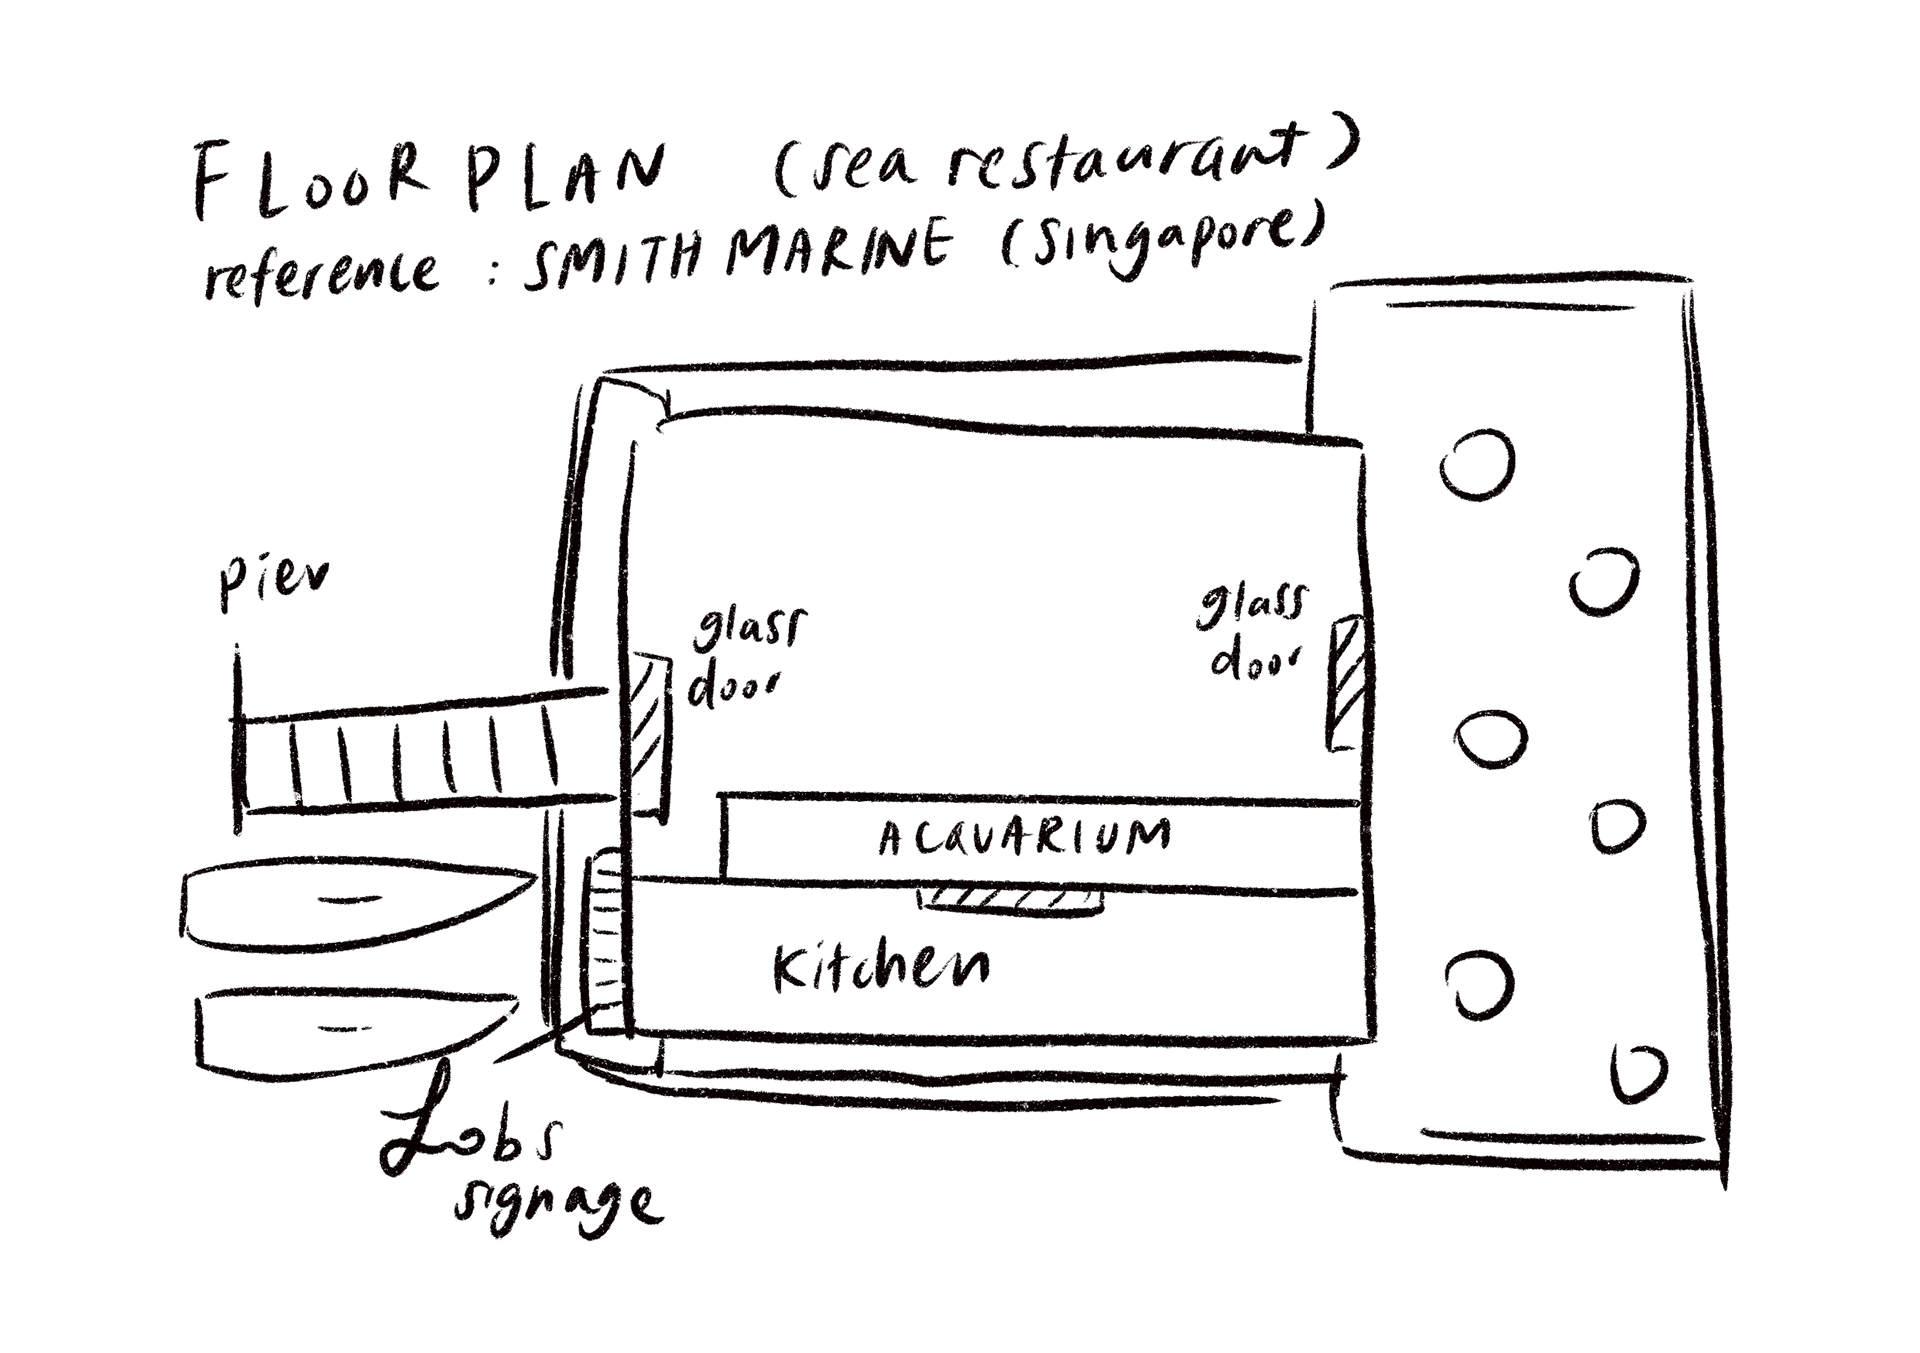 FLOOR PLAN (sea restaurant)
reference : SMITH MARINE (Singapore)
pier
glass
door
glass
door
ACQUARIUM
Kitchen
Lobs
signage